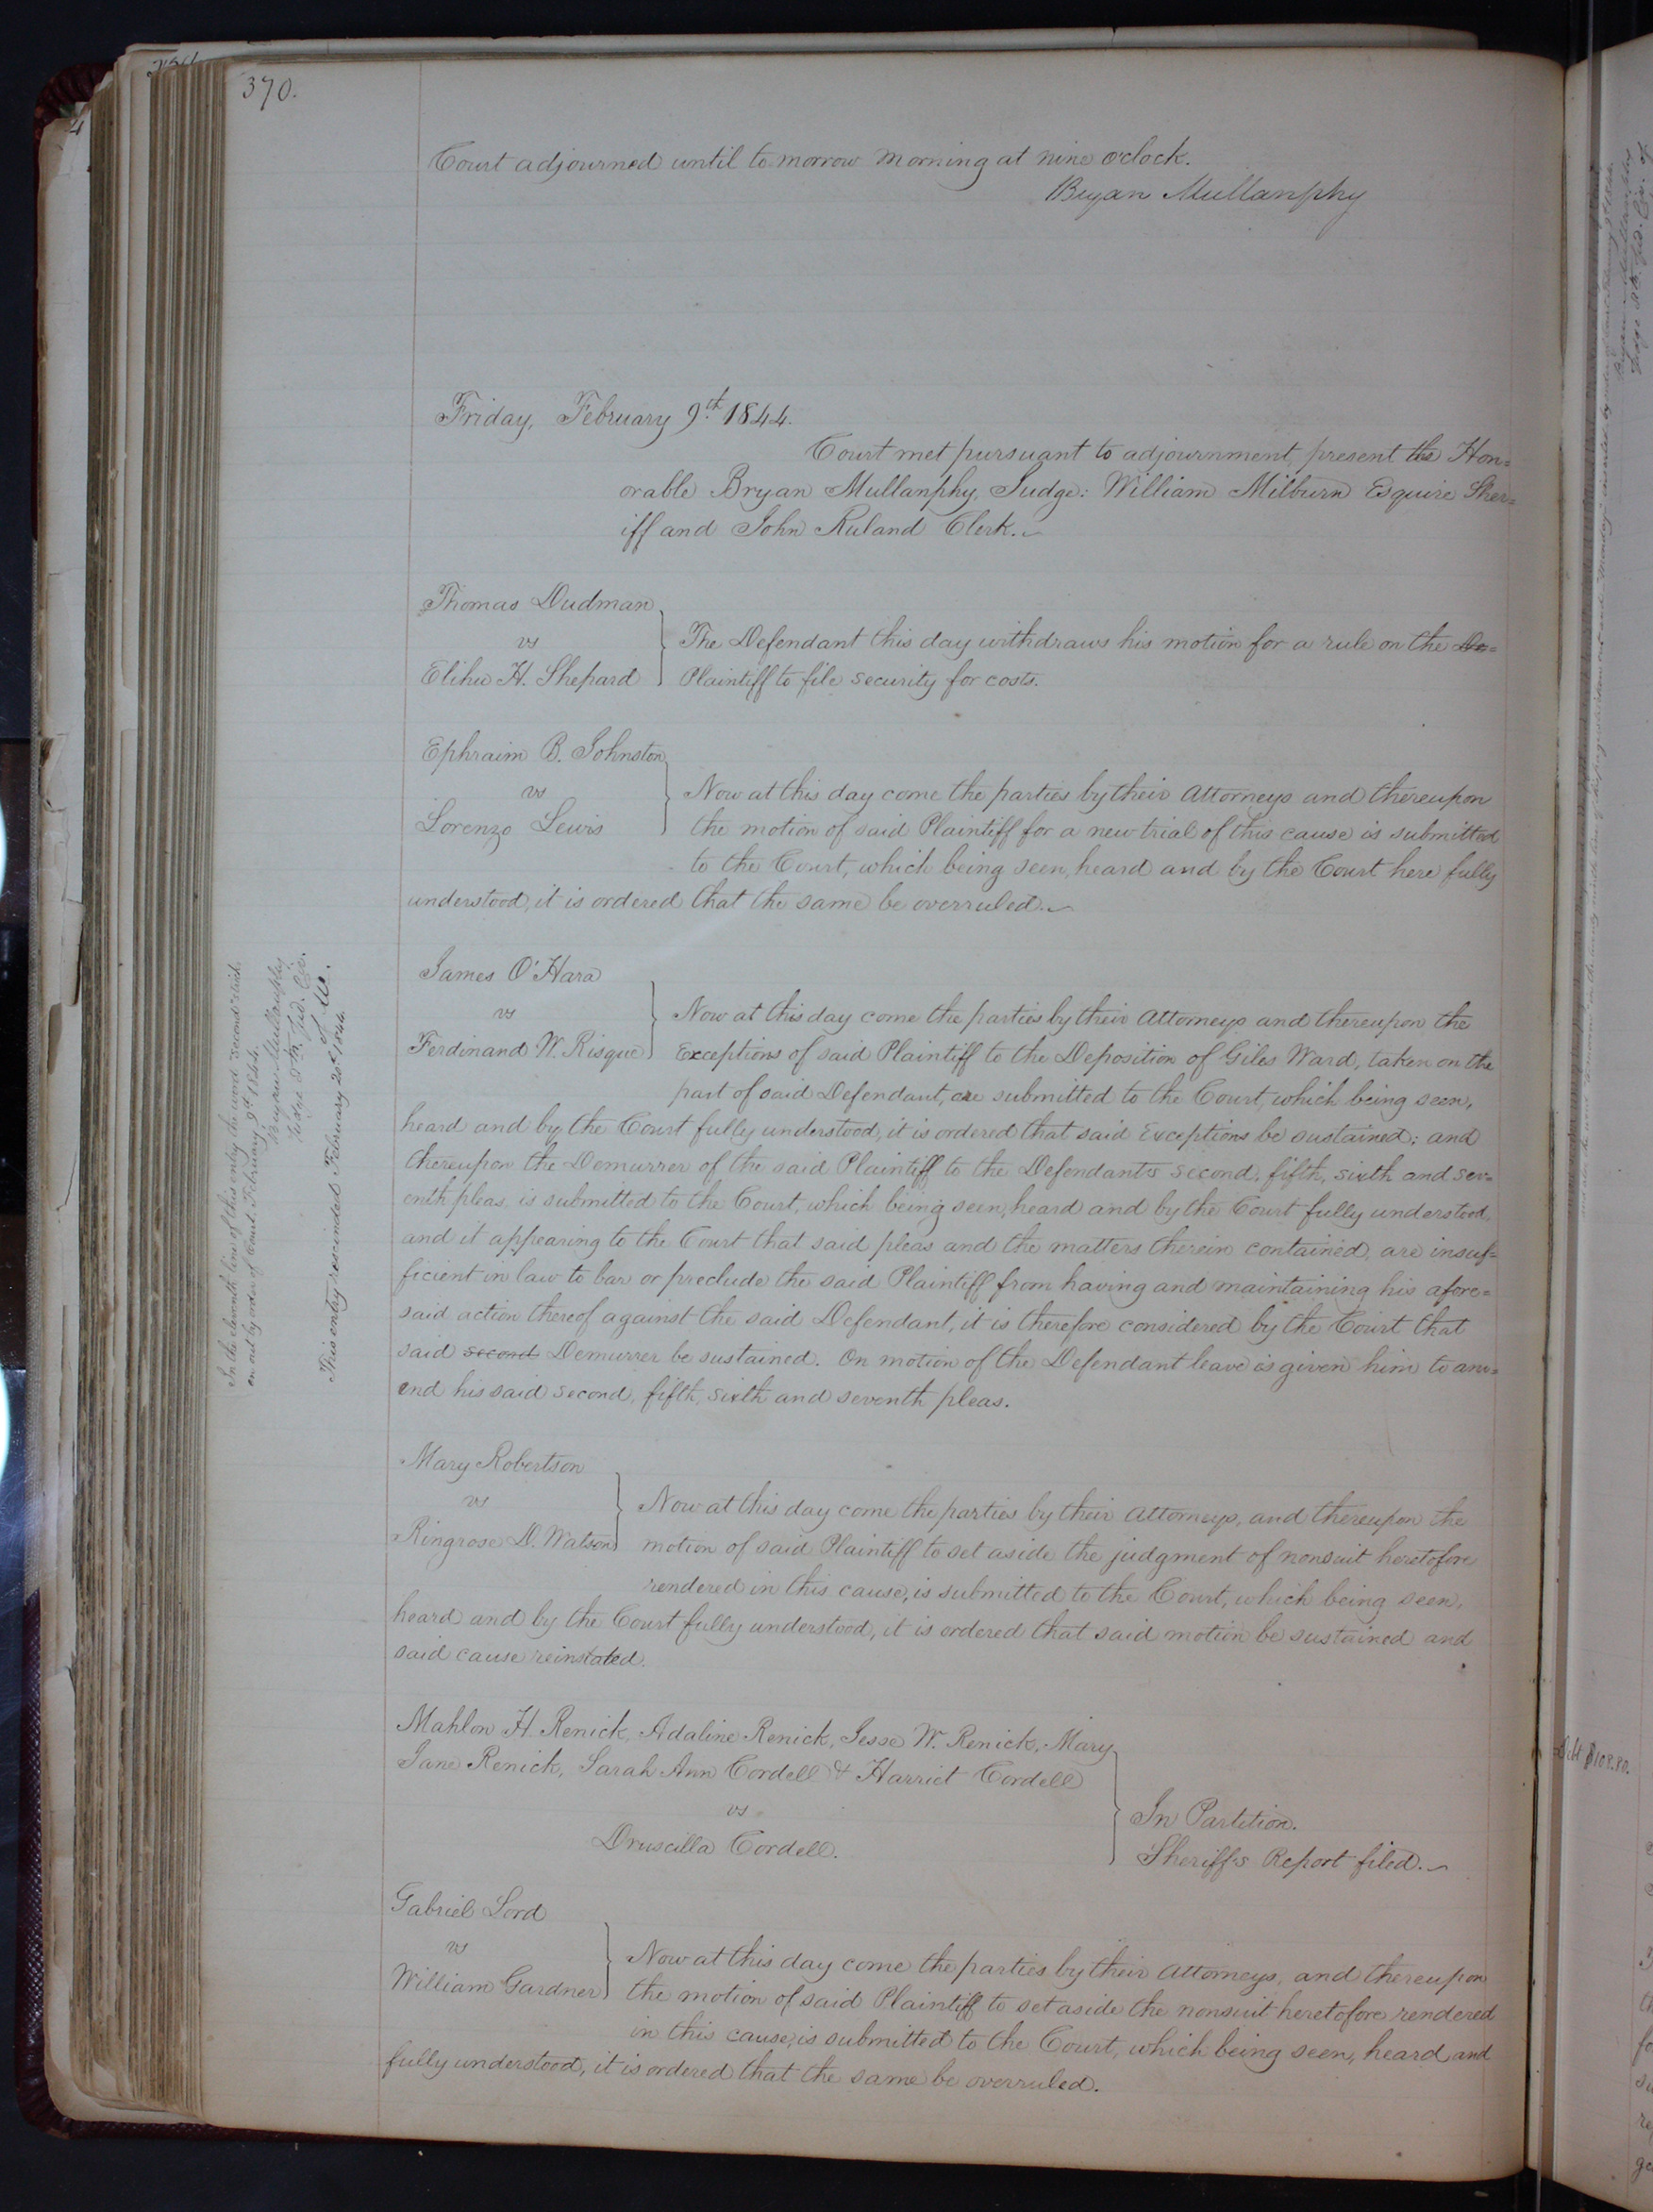 370.
Court adjourned until to morrow morning at nine o'clock.
Bryan Mullanphy
Friday, February 9th 1844.
Court met pursuant to adjournment, present the Hon=
orable Bryan Mullanphy, Judge: William Milburn Esquire Sher=
iff and John Ruland Clerk.
Thomas Dudman
vs
Elihu H. Shepard
The Defendant this day withdraws his motion for a rule on the De=
Plaintiff to file security for costs.
Ephraim B. Johnston
vs
Lorenzo Lewis
Now at this day come the parties by their Attorneys and thereupon
the motion of said Plaintiff for a new trial of this cause is submitted
to the Court, which being seen, heard and by the Court here fully
understood, it is ordered that the same be overruled.
James O'Hara
vs
Ferdinand W. Risque
Now at this day come the parties by their Attorneys and thereupon the
Exceptions of said Plaintiff to the Deposition of Giles Ward, taken on the
part of said Defendant, are submitted to the Court, which being seen,
heard and by the Court fully understood, it is ordered that said Exceptions be sustained; and
thereupon the Demurrer of the said Plaintiff to the Defendants second, fifth, sixth and sev=
enth pleas, is submitted to the Court, which being seen, heard and by the Court fully understood,
and it appearing to the Court that said pleas and the matters therein contained, are insuf=
ficient in law to bar or preclude the said Plaintiff from having and maintaining his afore=
said action thereof against the said Defendant, it is therefore considered by the Court that
said second Demurrer be sustained. On motion of the Defendant leave is given him to am=
end his said second, fifth, sixth and seventh pleas.
In the eleventh line of this entry the word "second" strick=
en out by order of Court. February 9th 1844.
Bryan Mullanphy
Judge 8th Jud. Cir.
of Mo.
This entry rescinded February 20th 1844.
Mary Robertson
vs
Ringrose D. Watson
Now at this day come the parties by their Attorneys, and thereupon the
motion of said Plaintiff to set aside the judgment of nonsuit heretofore
rendered in this cause, is submitted to the Court, which being seen,
heard and by the Court fully understood, it is ordered that said motion be sustained and
said cause reinstated.
Mahlon H. Renick, Adaline Renick, Jesse W. Renick, Mary
Jane Renick, Sarah Ann Cordell & Harriet Cordell
vs
Druscilla Cordell.
In Partition.
Sheriff's Report filed.
Gabriel Lord
vs
William Gardner
Now at this day come the parties by their Attorneys, and thereupon
the motion of said Plaintiff to set aside the nonsuit heretofore rendered
in this cause, is submitted to the Court, which being seen, heard and
fully understood, it is ordered that the same be overruled.
$108.80.